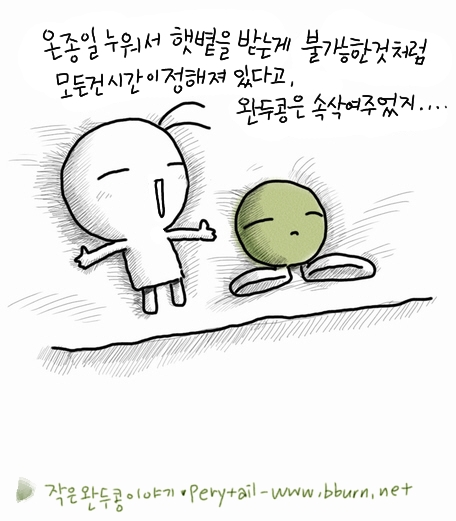 온종일 누워서 햇볕을 받는게 불가능한것처럼
모든건 시간이 정해져 있다고,
완두콩은 속삭여주었지....
작은완두콩이야기•Pery+ail-www.bburn.net